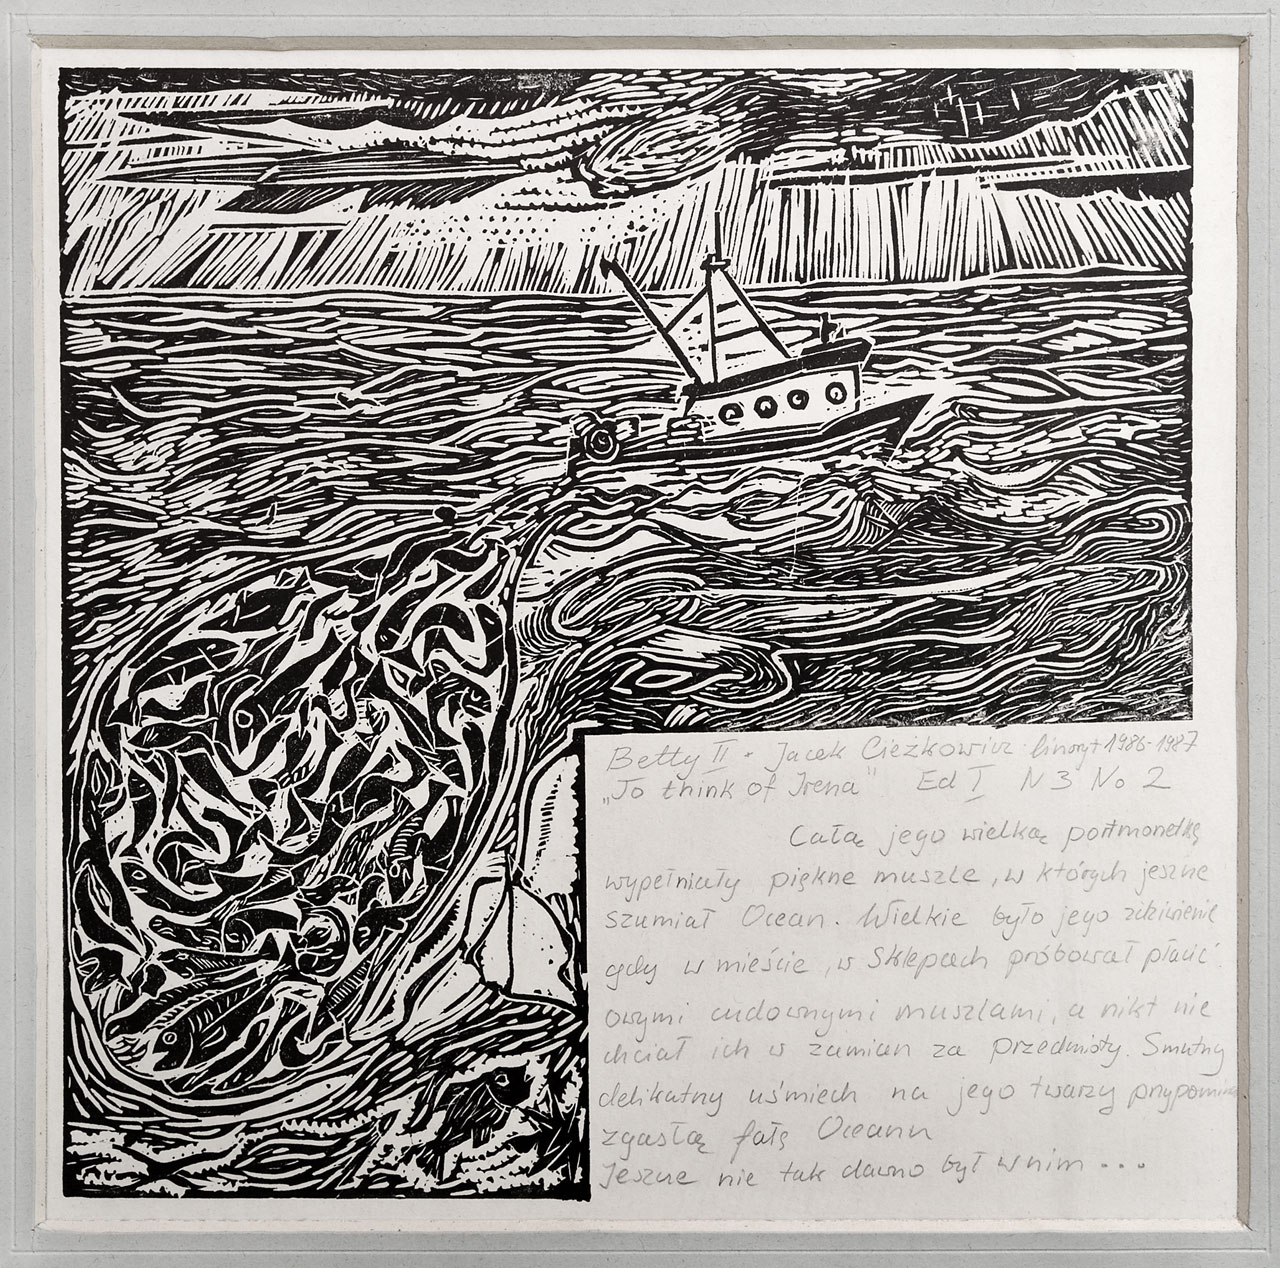 Betty II - Jacek Cieżkowicz linoryt 1986-1987
„To think of Irena" Ed I N 3 No 2
Całą jego wielką portmonetkę
wypełniały piękne muszle, w których jeszcze
szumiał Ocean. Wielkie było jego zdziwienie
gdy w mieście, w sklepach próbował płacić
owymi cudownymi muszlami, a nikt nie
chciał ich w zamian za przedmioty. Smutny
delikatny uśmiech na jego twarzy przypominał
zgasłą falę Oceanu
Jeszcze nie tak dawno był w nim ...